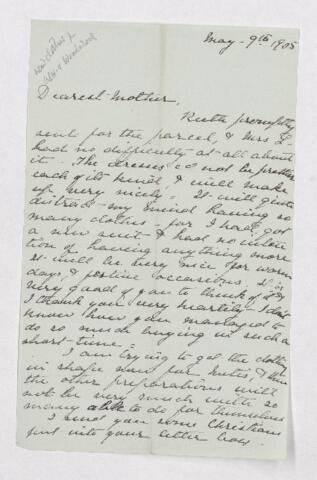 May - 9th 1905
new clothes for
Dearest Mother,
Ruth promptly
sent for the parcel, & Mrs L-
had no difficulty at all about
it - The dresses cd not be prettier
each of its kind, & will make
up very nicely - It will quite
distract my mind having so
many clothes - for I had got
a new suit & had no inten
tion of having anything more
It will be very nice for warm
days, & festive occasions. It is
very good of you to think of it &
I thank you very heartily - I don't
know how you managed to
do so much buying in such a
short time =
I am trying to get the clothing
in shape now for & then
the other preparations will
not be very much with so
many able to do for themselves
I send you some Christians
put into your letter box.